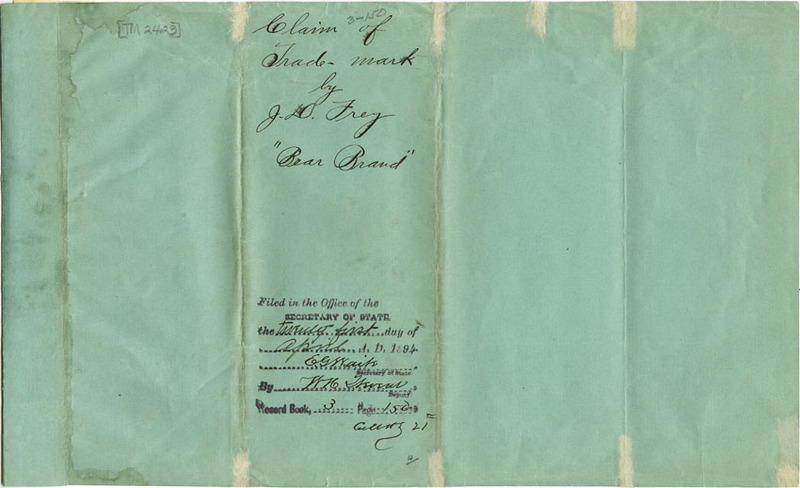 [TM 2423]
3-150
Claim of
Trade-mark
by
J. D. Frey
"Bear Brand"
Filed in the Office of the
SECRETARY OF STATE
the twenty first day of
April A. D. 1894
E G Waite
Secretary of State
By W. H.
Deputy
Record Book, 3 Page 150
21st